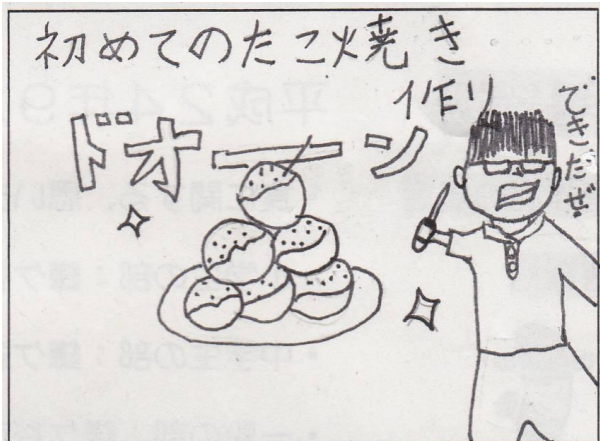 初めてのたこ焼き
作り
ドオーーン
できたぜ